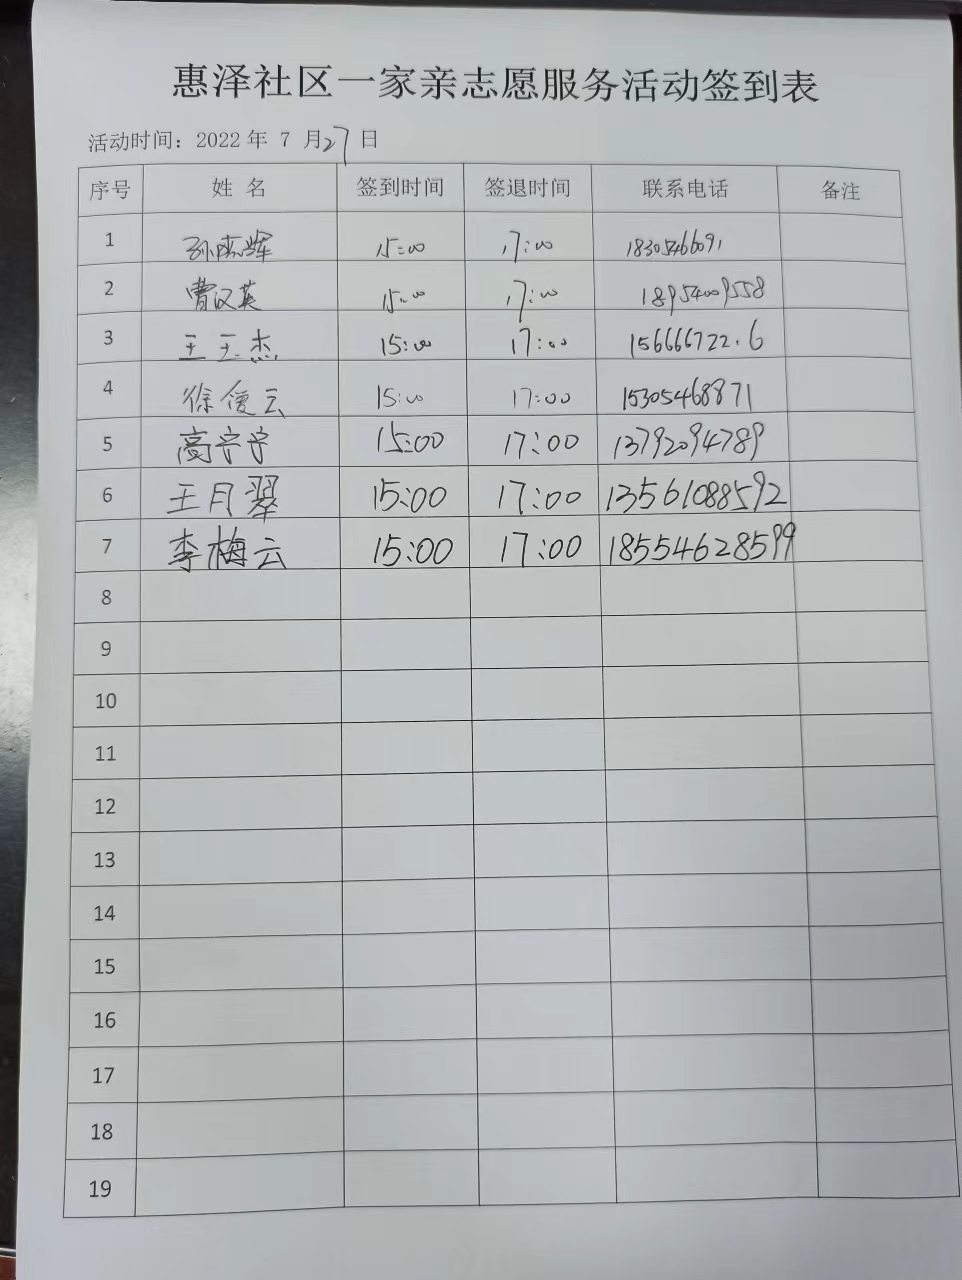 惠泽社区一家亲志愿服务活动签到表
活动时间：2022 年 7 月27日
序号 姓 名 签到时间 签退时间 联系电话 备注
1 15:00 17:00 18305466091
2 曹汉英 15:00 17:00 18954009558
3 王玉杰 15:00 17:00
4 徐俊云 15:00 17:00 15305468871
5 高宁宁 15:00 17:00 13792094789
6 王月翠 15:00 17:00 13561088592
7 李梅云 15:00 17:00 18554628599
8
9
10
11
12
13
14
15
16
17
18
19